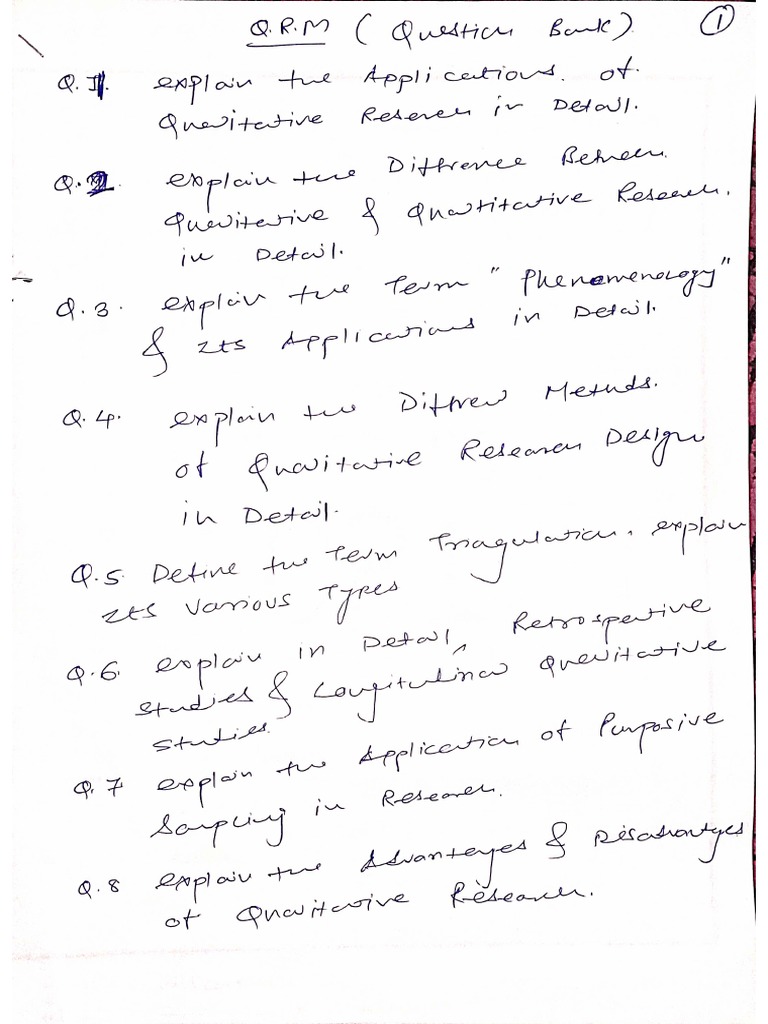 Q.R.M (Question Bank) 1
Q.1. explain the Applications. of
Qualitative Research in Detail.
Q.2. explain the Difference Between
Qualitative & Quantitative Research.
in Detail.
Q.3. explain the Term "Phenomenology"
& Its Applications in Detail.
Q.4. explain the Diffrent Methods.
of Qualitative Research Design
in Detail.
Q.5. Define the Term Triagulation. explain
Its Various Types
Q.6. explain in Detail, Retrospective
Studies & Longitudinal Qualitative
Studies.
Q.7 explain the Application of Purposive
Sampling in Research.
Q.8 explain the Advantages & Disadvantages
of Qualitative Research.